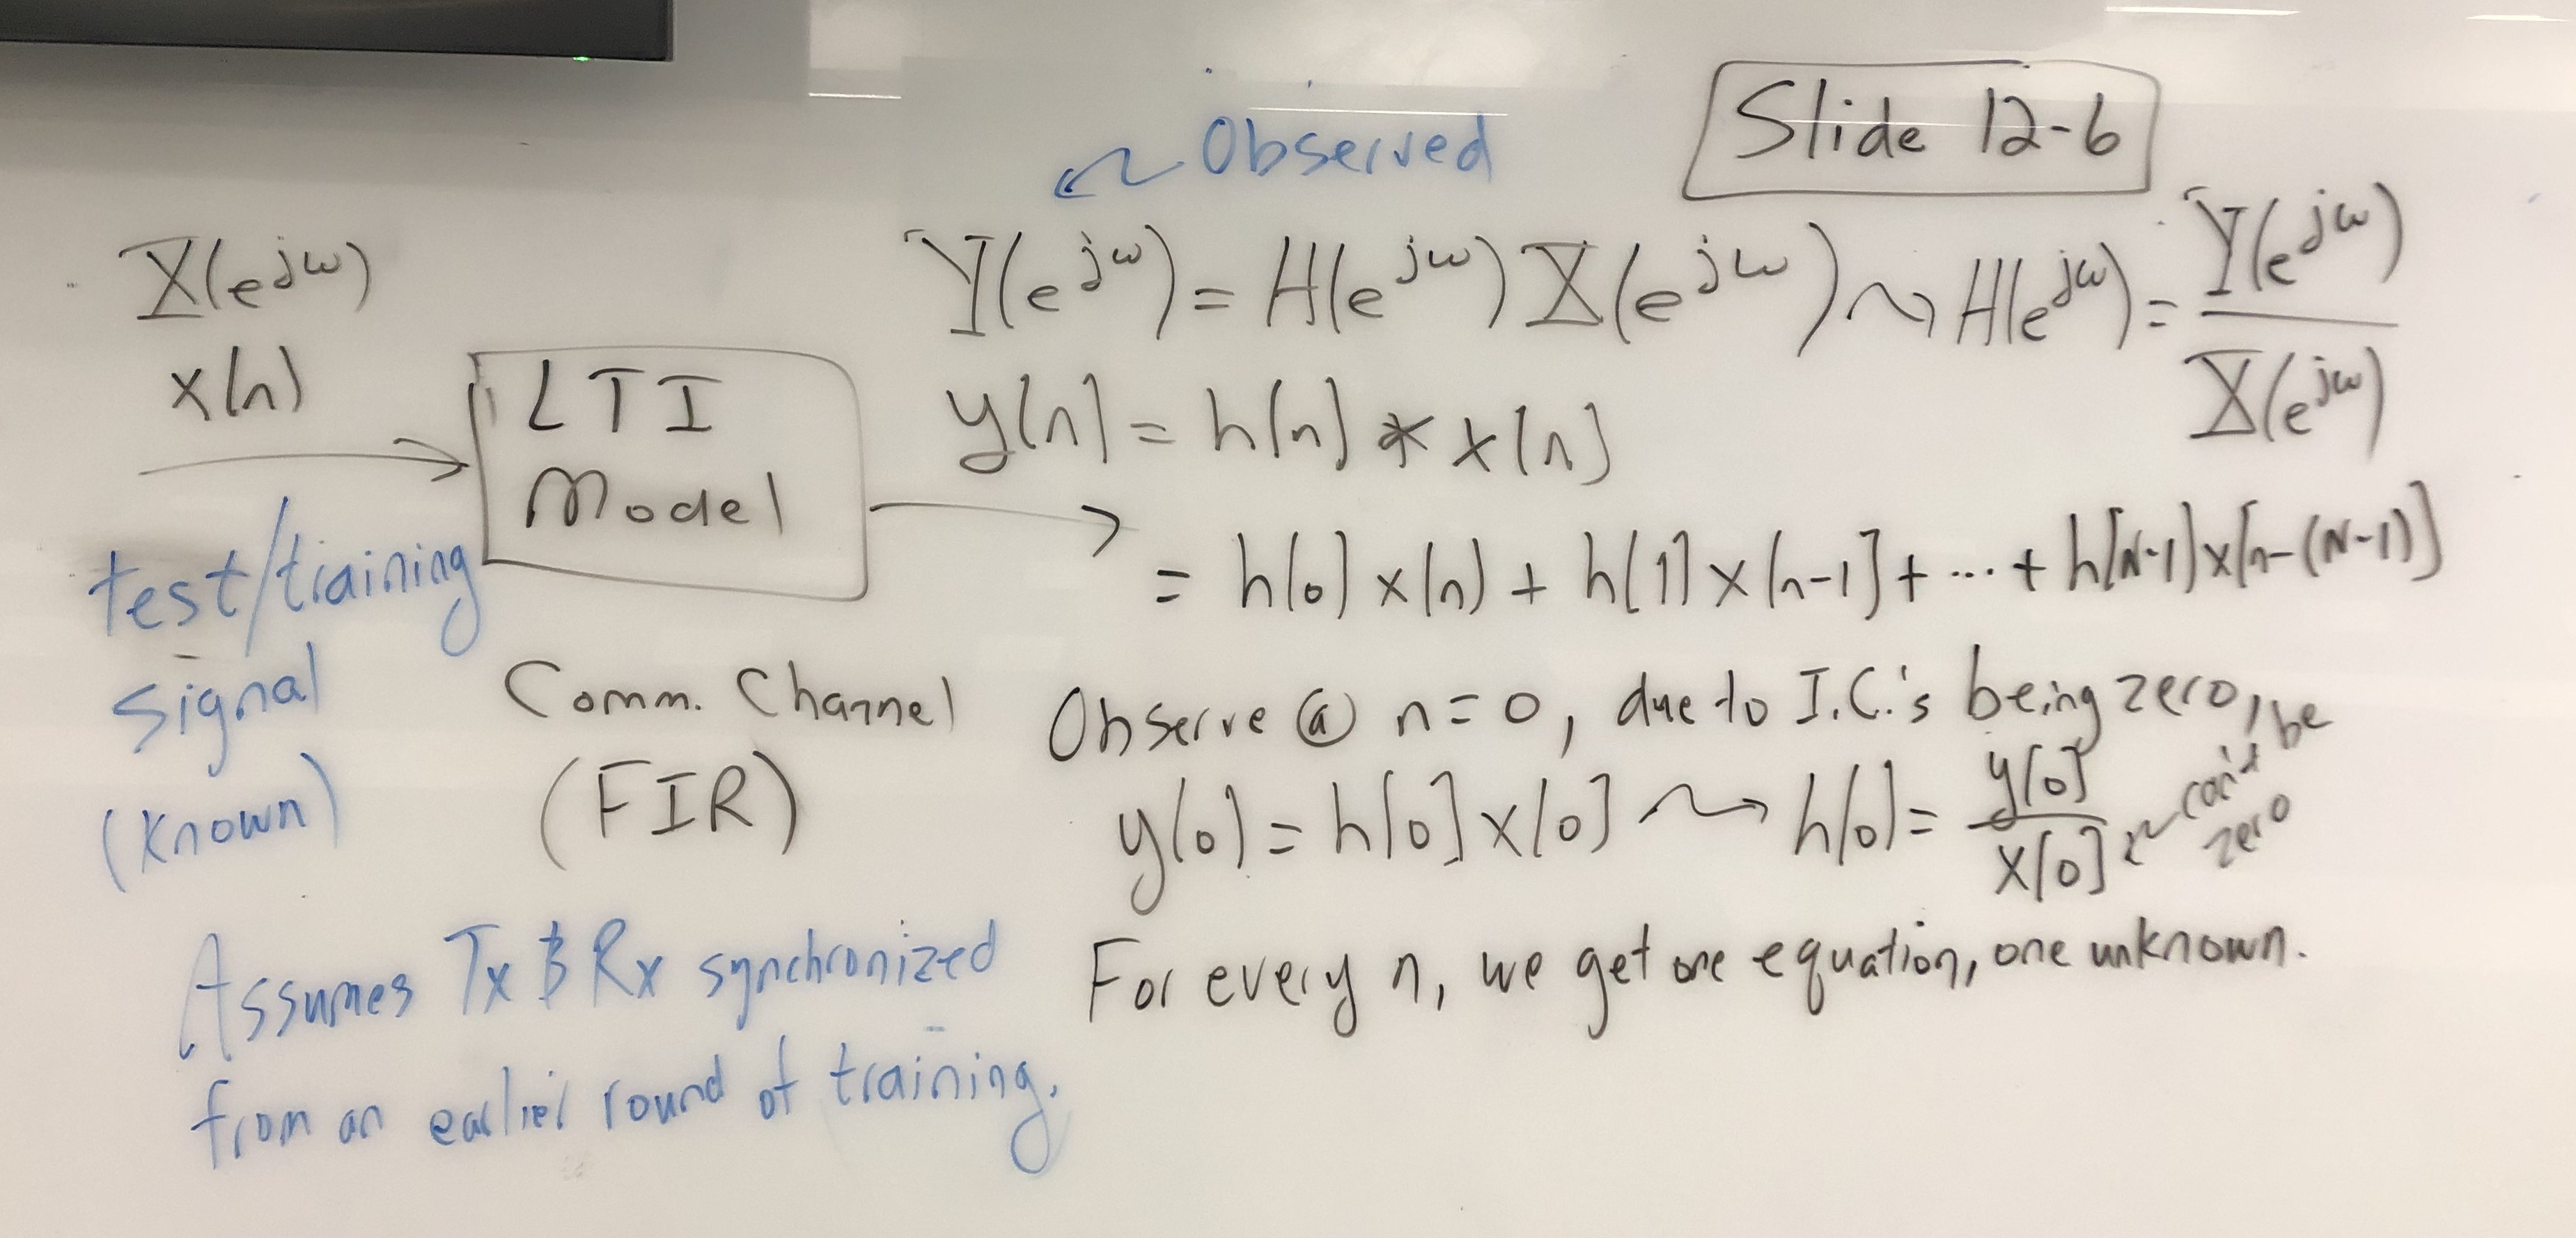 Slide 12-6
Observed
X(e^{jω})
x[n]
LTI
Model
test/training
signal
(known)
Comm. Channel
(FIR)
Assumes Tx & Rx synchronized
from an earlier round of training.
Y(e^{jω}) = H(e^{jω}) X(e^{jω}) ⇝ H(e^{jω}) = Y(e^{jω}) / X(e^{jω})
y[n] = h[n] * x[n]
= h[0] x[n] + h[1] x[n-1] + ... + h[N-1] x[n-(N-1)]
Observe @ n=0, due to I.C.'s being zero,
y[0] = h[0] x[0] ⇝ h[0] = y[0] / x[0] can't be zero
For every n, we get one equation, one unknown.